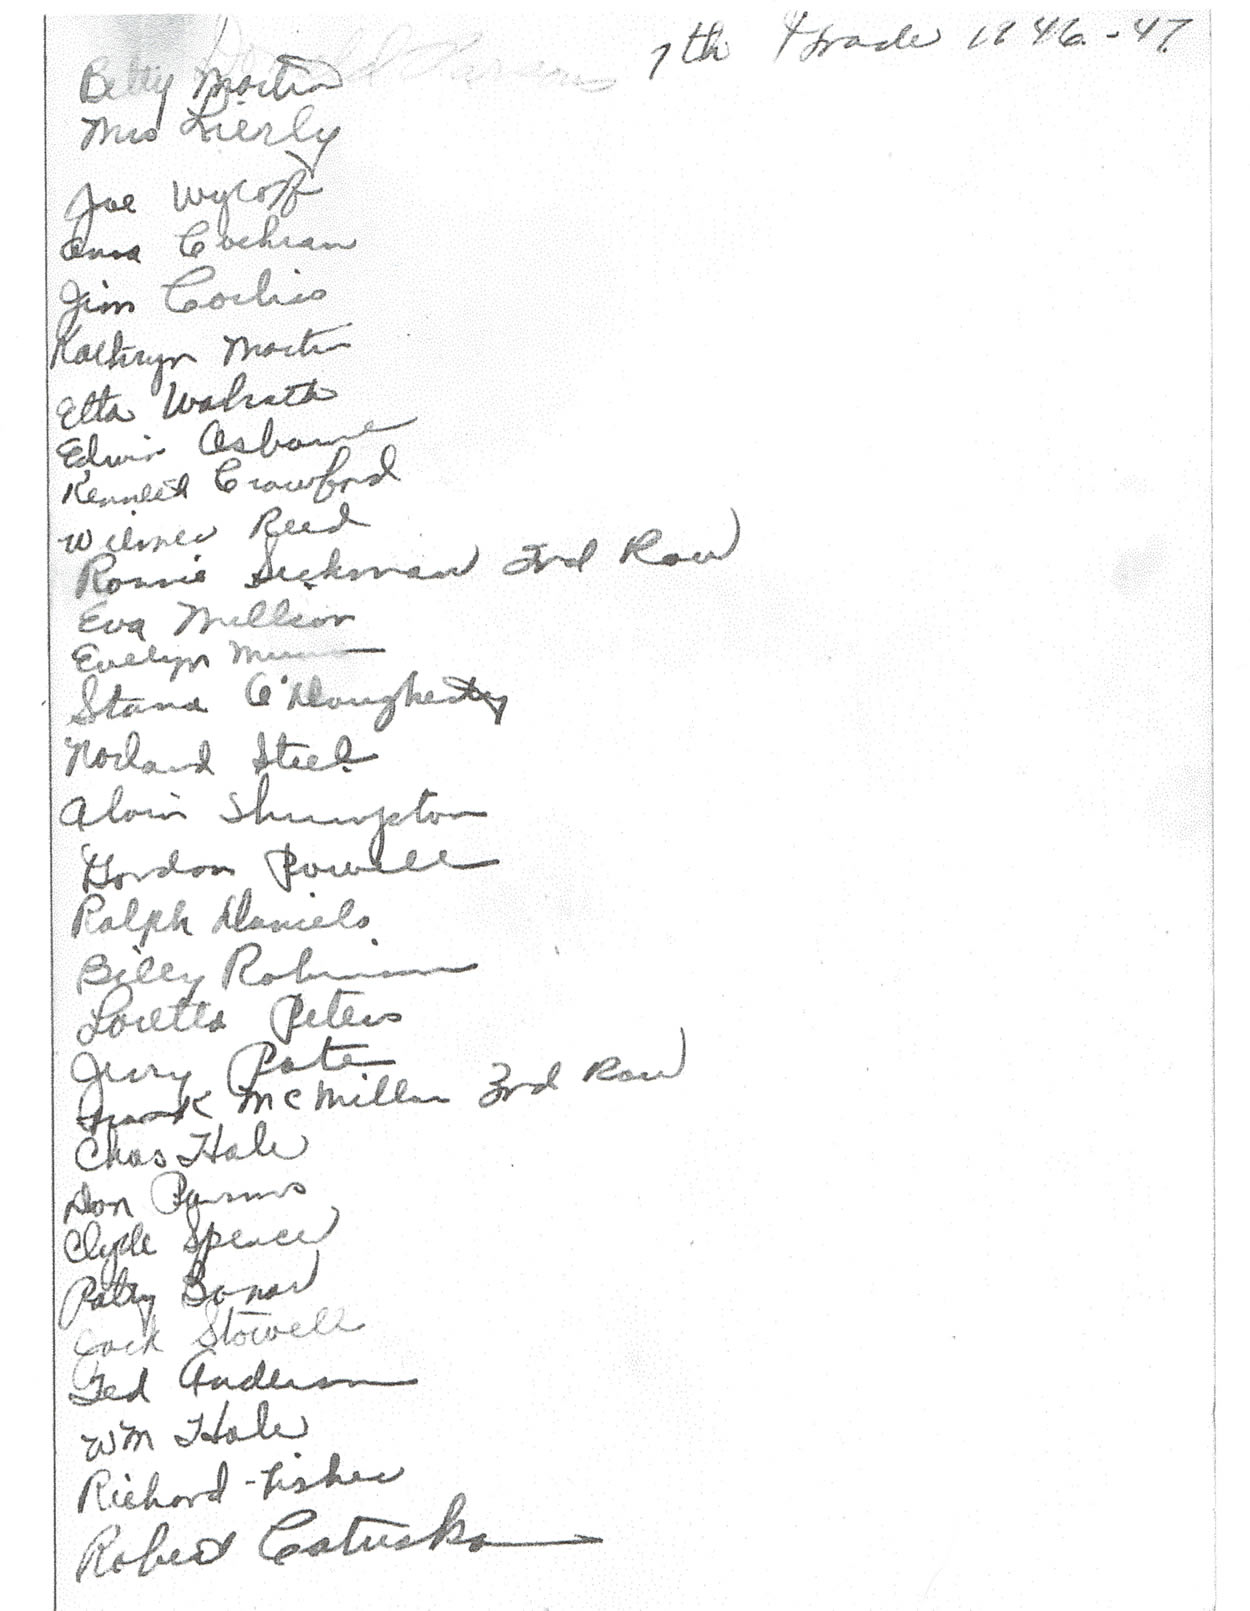 7th Grade 1946-47
Donald Parsons
Betty Martin
Mrs Lierly
Joe Wycoff
Anna Cochran
Jim
Kathryn Martin
Etta Walrath
Edwin Osborne
Kenneth Crawford
Wilmer Reed
Ronnie Sickman 2nd Row
Eva Million
Evelyn
O'Dougherty
Norland Steel
Alvin Shrimpton
Gordon Powell
Ralph Daniels
Billy Robinson
Loretta Peters
Jerry Pate
Frank McMillan 3rd Row
Chas Hale
Don Parsons
Clyde Spencer
Patty Bonar
Jack Stowell
Ted Anderson
Wm Hale
Richard-Fisher
Robert Catuska